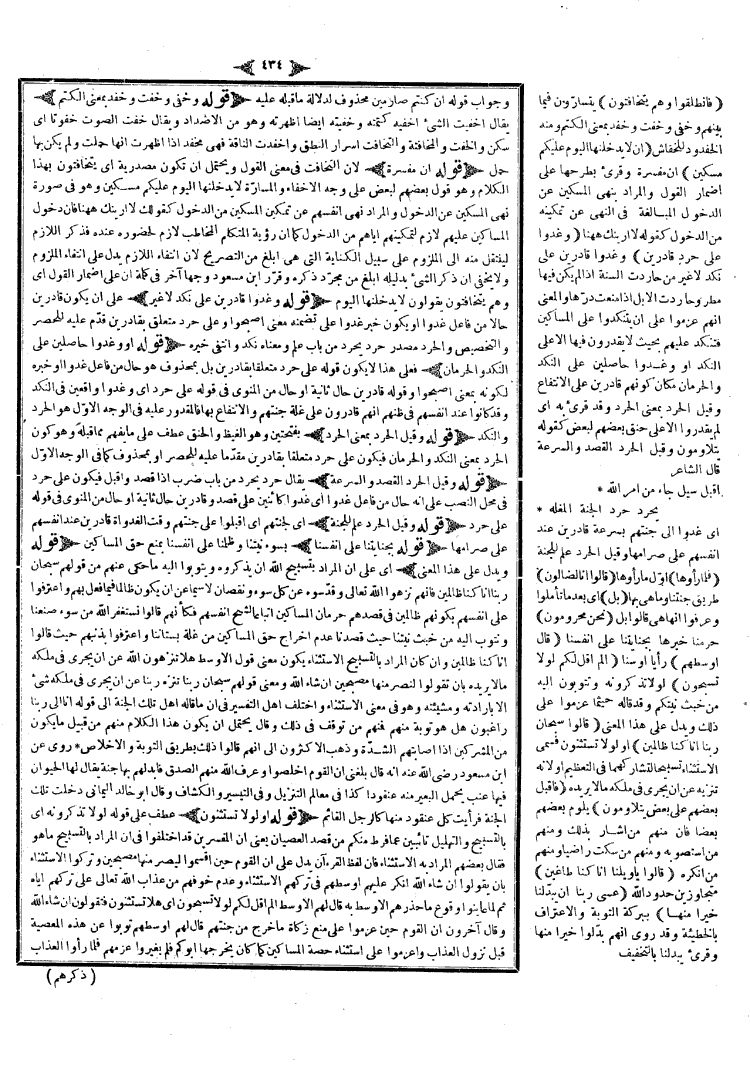 ٤٣٤
وجواب قوله ان كنتم صارمين محذوف لدلالة ماقبله عليه ﴿ قوله وخفى وخفت وخفد بمعنى الكتم ﴾
يقال اخفيت الشئ اخفيه كتمته وخفيته ايضا اظهرته وهو من الاضداد ويقال خفت الصوت خفوتا اى
سكن والخفت والمخافتة والتخافت اسرار النطق واخفدت الناقة فهى مخفد اذا اظهرت انها حملت ولم يكن بها
حمل ﴿ قوله ان مفسرة ﴾ لان التخافت فى معنى القول ويحتمل ان تكون مصدرية اى يتخافتون بهذا
الكلام وهو قول بعضهم لبعض على وجه الاخفاء والمسارّة لايدخلنها اليوم عليكم مسكين وهو فى صورة
نهى المسكين عن الدخول و المراد نهى انفسهم عن تمكين المسكين من الدخول كقولك لا ارينك ههنا فان دخول
المساكين عليهم لازم لتمكينهم اياهم من الدخول كما ان رؤية المتكلم المخاطب لازم لحضوره عنده فذكر اللازم
لينتقل منه الى الملزوم على سبيل الكناية التى هى ابلغ من التصريح لان انتفاء اللازم يدل على انتفاء الملزوم
ولايخفى ان ذكر الشئ بدليله ابلغ من مجرّد ذكره وقرّر ابن مسعود وجها آخر فى كلمة ان على اضمار القول اى
وهم يتخافتون يقولون لايدخلنها اليوم ﴿ قوله وغدوا قادرين على نكد لاغير ﴾ على ان يكون قادرين
حالا من فاعل غدوا او يكون خبر غدوا على تضمنه معنى اصبحوا وعلى حرد متعلق بقادرين قدّم عليه للحصر
والتخصيص والحرد مصدر حرد يحرد من باب علم ومعناه نكد وانتفى خيره ﴿ قوله اووغدوا حاصلين على
النكد والحرمان ﴾ فعلى هذا لايكون قوله على حرد متعلقا بقادرين بل بمحذوف هو حال من فاعل غدوا او خبره
لكونه بمعنى اصبحوا وقوله قادرين حال ثانية او حال من المنوى فى قوله على حرد اى وغدوا واقعين فى النكد
وقد كانوا عند انفسهم فى ظنهم انهم قادرون على غلة جنتهم والانتفاع بها فالمقدور عليه فى الوجه الاوّل هو الحرد
والنكد ﴿ قوله وقيل الحرد بمعنى الحرد ﴾ بفتحتين وهو الغيظ والحنق عطف على مايفهم مماقبله وهو كون
الحرد بمعنى النكد والحرمان فيكون على حرد متعلقا بقادرين مقدّما عليه للحصر او بمحذوف كما فى الوجه الاوّل
﴿ قوله وقيل الحرد القصد والسرعة ﴾ يقال حرد يحرد من باب ضرب اذا قصد واقبل فيكون على حرد
فى محل النصب على انه حال من فاعل غدوا اى غدوا كائنين على قصد وقادرين حال ثانية او حال من المنوى فى قوله
على حرد ﴿ قوله وقيل الحرد علم للجنة ﴾ اى لجنتهم اى اقبلوا على جنتهم وقت الغدواة قادرين عند انفسهم
على صرامها ﴿ قوله بجنايتنا على انفسنا ﴾ بسوء نيتنا وظلمنا على انفسنا بمنع حق المساكين ﴿ قوله
ويدل على هذا المعنى ﴾ اى على ان المراد بالتسبيح الله ان يذكروه ويتوبوا اليه ماحكى عنهم من قولهم سبحان
ربنا انا كنا ظالمين فانهم نزهوا الله تعالى وقدّسوه عن كل سوء ونقصان لاسيما عن ان يكون ظالما فيما فعل بهم واعترفوا
على انفسهم بكونهم ظالمين فى قصدهم حرمان المساكين اتباعا لشح انفسهم فكأنهم قالوا نستغفر الله من سوء صنعنا
ونتوب اليه من خبث نيتنا حيث قصدنا عدم اخراج حق المساكين من غلة بستاننا واعترفوا بذنبهم حيث قالوا
انا كنا ظالمين وان كان المراد بالتسبيح الاستثناء يكون معنى قول الاوسط هلا تنزهون الله عن ان يجرى فى ملكه
مالايريده بان تقولوا لنصرمنها مصبحين ان شاء الله ومعنى قولهم سبحان ربنا تنزه ربنا عن ان يجرى فى ملكه شئ
الا بارادته ومشيئته وهو فى معنى الاستثناء واختلف اهل التفسير فى ان ماقاله اهل تلك الجنة الى قوله انا الى ربنا
راغبون هل هو توبة منهم فمنهم من توقف فى ذلك وقال يحتمل ان يكون هذا الكلام منهم من قبيل مايكون
من المشركين اذا اصابتهم الشدّة و ذهب الاكثرون الى انهم قالوا ذلك بطريق التوبة و الاخلاص * روى عن
ابن مسعود رضى الله عنه انه قال بلغنى ان القوم اخلصوا وعرف الله منهم الصدق فابدلهم بها جنة يقال لها الحيوان
فيها عنب يحمل البعير منه عنقودا كذا فى معالم التنزيل وفى التيسير والكشاف وقال ابو خالد اليمانى دخلت تلك
الجنة فرأيت كل عنقود منها كالرجل القائم ﴿ قوله او لولا تستثنون ﴾ عطف على قوله لولا تذكرونه اى
بالتسبيح والتهليل تائبين عما فرط منكم من قصد العصيان يعنى ان المفسرين قد اختلفوا فى ان المراد بالتسبيح ماهو
فقال بعضهم المراد به الاستثناء فان لفظ القرءآن يدل على ان القوم حين اقسموا ليصرمنها مصبحين وتركوا الاستثناء
بان يقولوا ان شاء الله انكر عليهم اوسطهم فى تركهم الاستثناء وعدم خوفهم من عذاب الله تعالى على تركهم اياه
ثم لما عاينوا وقوع ماحذرهم الاوسط به قال لهم الاوسط الم اقل لكم لولا تسبحون اى هلا تستثنون فتقولون ان شاء الله
وقال آخرون ان القوم حين عزموا على منع زكاة ماخرج من جنتهم قال لهم اوسطهم توبوا عن هذه المعصية
قبل نزول العذاب واعزموا على استثناء حصة المساكين كما كان يخرجها ابوكم فلم يغيروا عزمهم فلما رأوا العذاب
( ذكرهم )
( فانطلقوا وهم يتخافتون ) يتسارّون فيما
بينهم وخفى وخفت وخفد بمعنى الكتم ومنه
الخفدود للخفاش ( ان لايدخلنها اليوم عليكم
مسكين ) ان مفسرة وقرئ بطرحها على
اضمار القول والمراد بنهى المسكين عن
الدخول المبالغة فى النهى عن تمكينه
من الدخول كقوله لاارينك ههنا ( وغدوا
على حرد قادرين ) وغدوا قادرين على
نكد لاغير من حاردت السنة اذا لم يكن فيها
مطر وحاردت الابل اذا منعت درّها والمعنى
انهم عزموا على ان يتنكدوا على المساكين
فتنكد عليهم بحيث لايقدرون فيها الا على
النكد او وغدوا حاصلين على النكد
والحرمان مكان كونهم قادرين على الانتفاع
وقيل الحرد بمعنى الحرد وقد قرئ به اى
لم يقدروا الا على حنق بعضهم لبعض كقوله
يتلاومون وقيل الحرد القصد والسرعة
قال الشاعر
اقبل سيل جاء من امر الله *
يحرد حرد الجنة المغله *
اى غدوا الى جنتهم بسرعة قادرين عند
انفسهم على صرامها وقيل الحرد علم للجنة
( فلما رأوها ) اوّل مارأوها ( قالوا انا لضالون )
طريق جنتنا وماهى بها ( بل ) اى بعد ماتأملوا
وعرفوا انها هى قالوا بل ( نحن محرومون )
حرمنا خيرها بجنايتنا على انفسنا ( قال
اوسطهم ) رأيا او سنا ( الم اقل لكم لولا
تسبحون ) لولا تذكرونه وتتوبون اليه
من خبث نيتكم وقد قاله حيثما عزموا على
ذلك ويدل على هذا المعنى ( قالوا سبحان
ربنا انا كنا ظالمين ) او لولا تستثنون فسمى
الاستثناء تسبيحا لتشاركهما فى التعظيم او لانه
تنزيه عن ان يجرى فى ملكه مالايريده ( فاقبل
بعضهم على بعض يتلاومون ) يلوم بعضهم
بعضا فان منهم من اشار بذلك ومنهم
من استصوبه ومنهم من سكت راضيا ومنهم
من انكره ( قالوا ياويلنا انا كنا طاغين )
متجاوزين حدود الله ( عسى ربنا ان يبدلنا
خيرا منها ) ببركة التوبة والاعتراف
بالخطيئة وقد روى انهم بدّلوا خيرا منها
وقرئ يبدلنا بالتخفيف